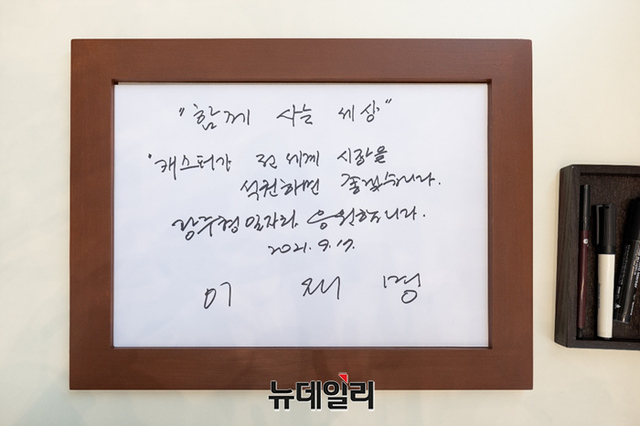 "함께 사는 세상"
"캐스퍼가 전 세계 시장을
석권하면 좋겠습니다.
광주형일자리, 응원합니다.
2021. 9. 17.
이 재 명
뉴데일리